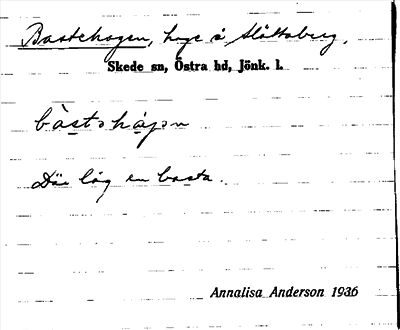 Bastehagen, hage å Slättaberg.
Skede sn, Östra hd, Jönk. l.
Där låg en basta.
Annalisa Anderson 1936